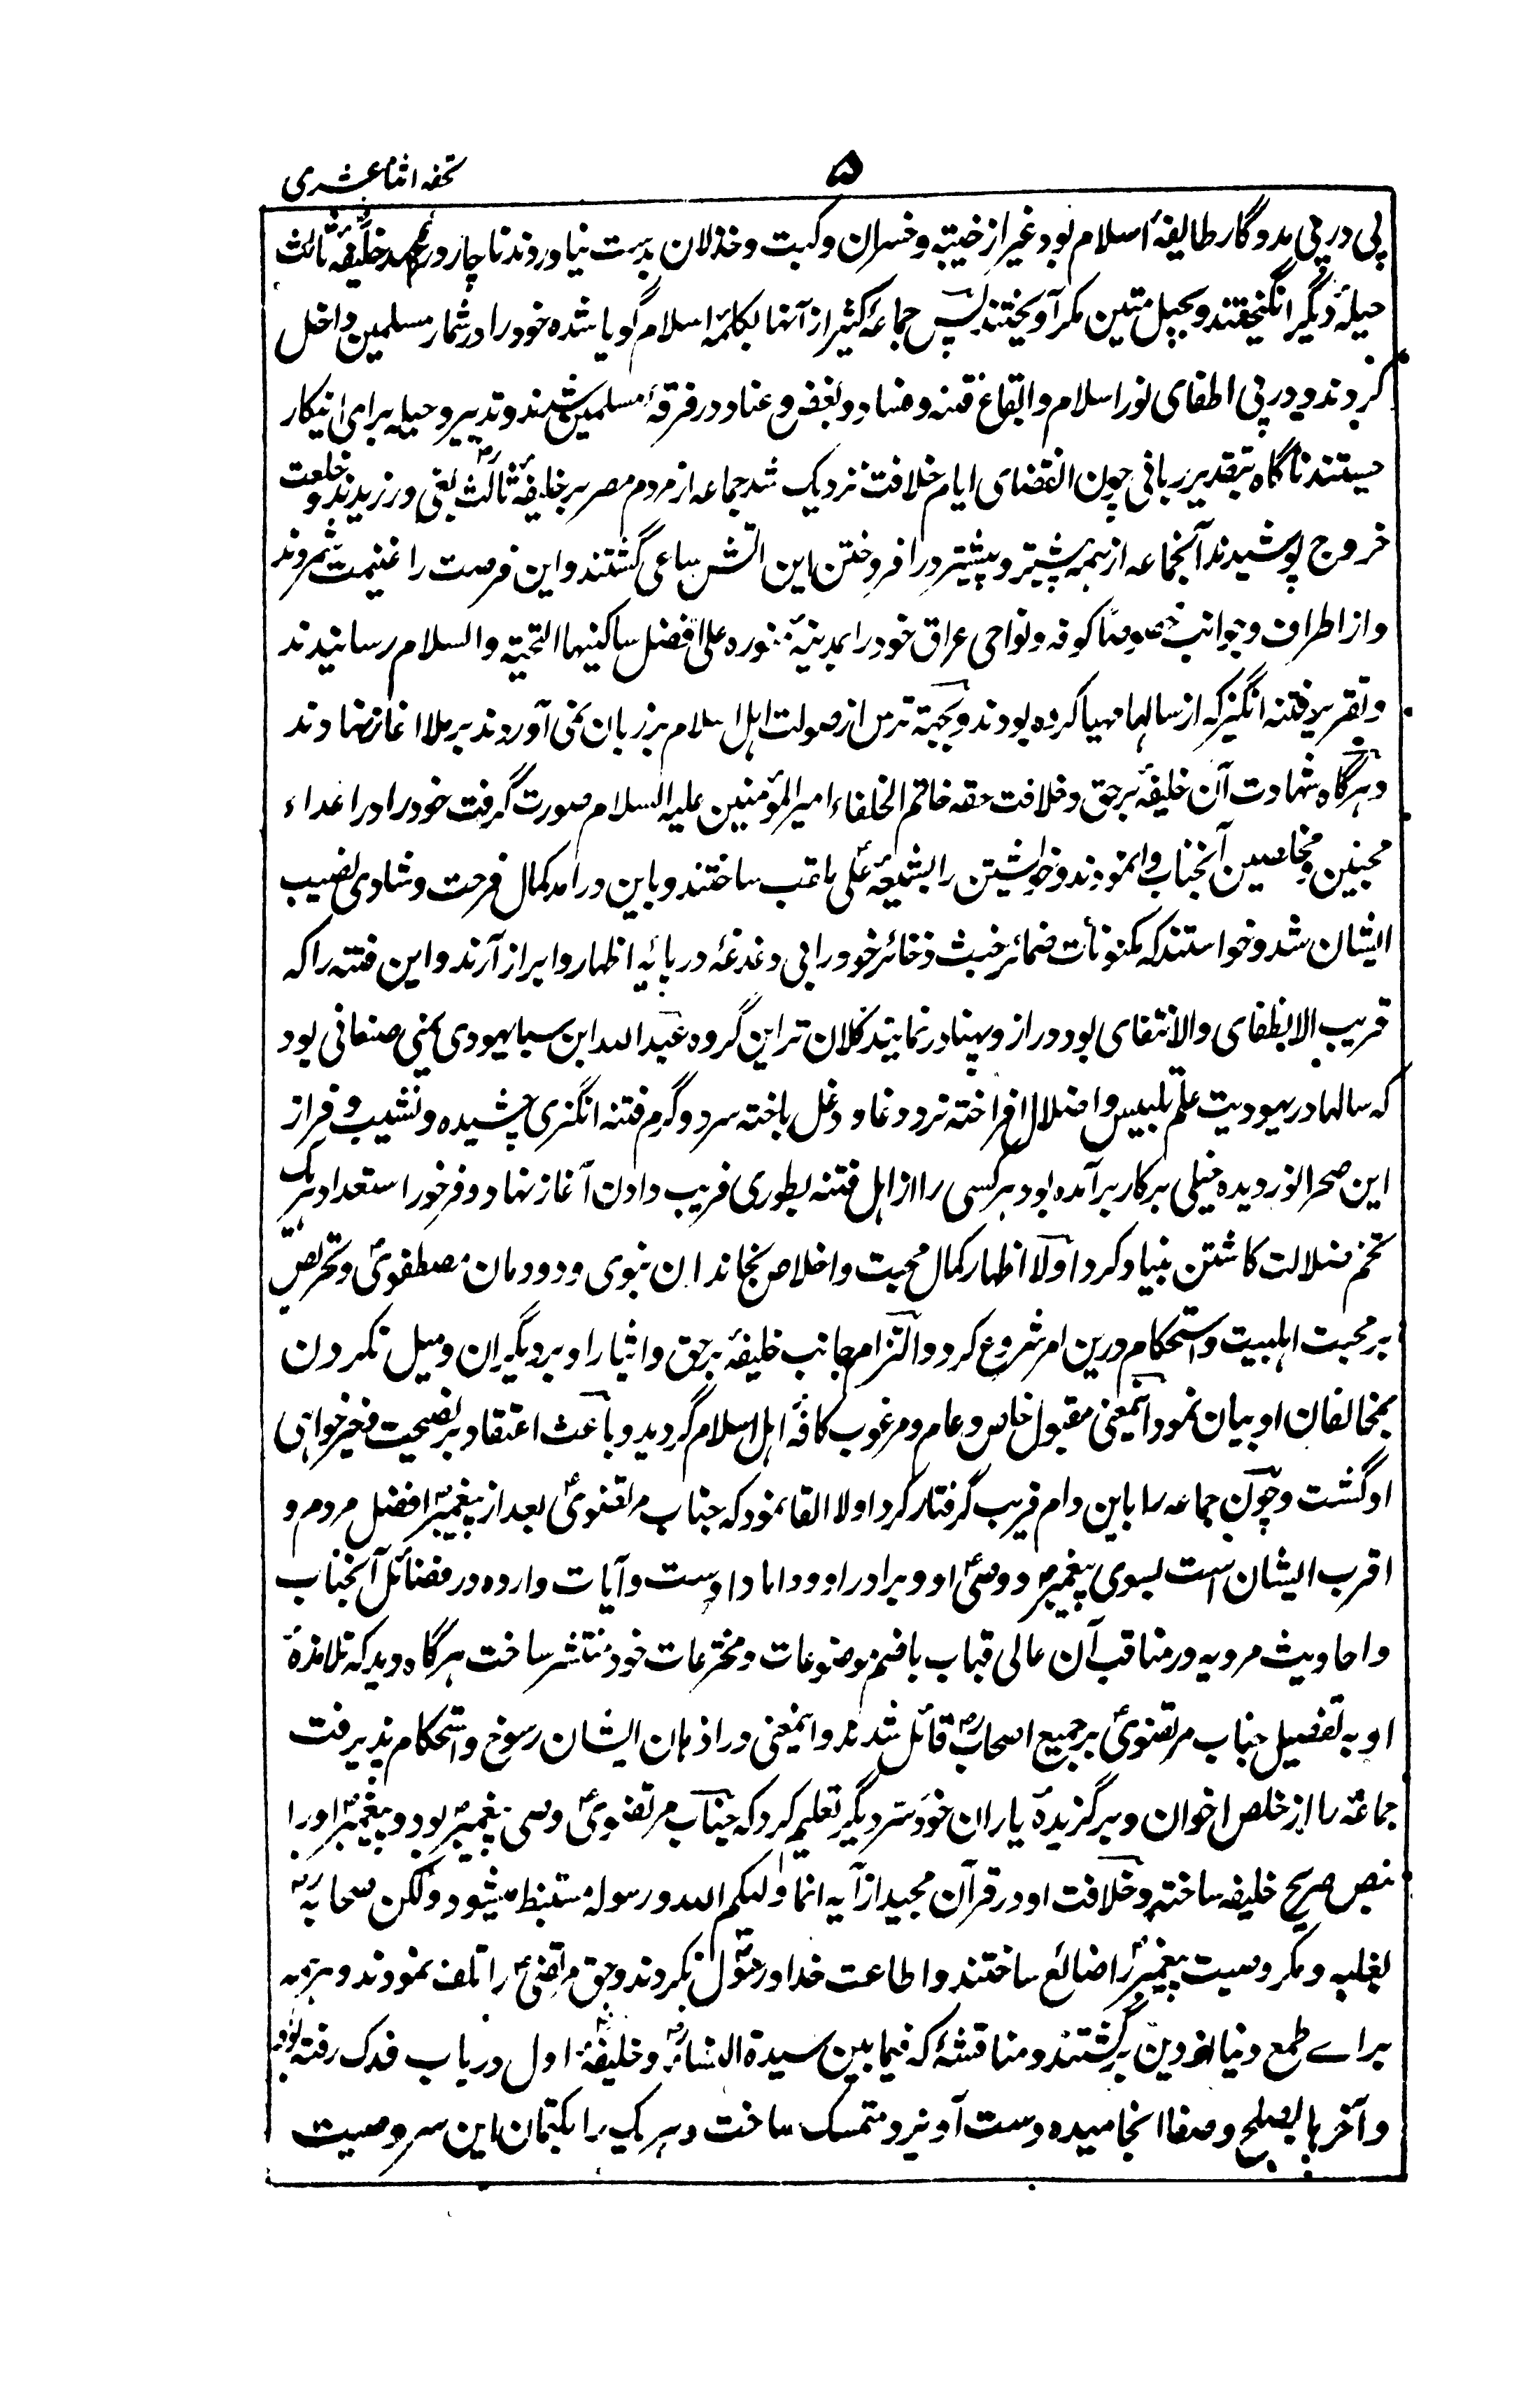 ۵
تحفه اثنا عشری
پی در پی مددگار طائفهٔ اسلام بود غیر از خیبه و خسران و نکبت و خذلان بدست نیاوردند ناچار در عهد خلیفهٔ ثالث
حیلهٔ دیگر انگیختند و بحبل متین مکر آویختند پس جماعهٔ کثیر از آنها بکلمهٔ اسلام گویا شده خود را در شمار مسلمین داخل
کردند و در پی اطفای نور اسلام و ایقاع فتنه و فساد و بغض و عناد در فرقهٔ مسلمین شدند و تدبیر و حیله برای اینکار
جستند ناگاه بتقدیر ربانی چون انقضای ایام خلافت نزدیک شد جماعه از مردم مصر بر خلیفهٔ ثالثؓ بغی ورزیدند و خلعت
خروج پوشیدند آنجماعه از همه بیشتر و پیشتر در افروختن این آتش ساعی گشتند و این فرصت را غنیمت شمردند
و از اطراف و جوانب خصوصا کوفه و نواحی عراق خود را بمدینهٔ منوره علی افضل ساکنیها التحیة و السلام رسانیدند
و تقریر فتنه انگیز که از سالها مهیا کرده بودند و بجهة ترس از صولت اهل اسلام بر زبان نمی آوردند برملا آغاز نهادند
و هرگاه شهادت آن خلیفهٔ برحق و خلافت حقه خاتم الخلفاء امیر المؤمنین علیه السلام صورت گرفت خود را در اعداء
محبین و مخلصین آنجناب وانمودند و خویشتن را بشیعهٔ علیؑ ملقب ساختند و باین درآمد کمال فرحت و شادی نصیب
ایشان شد و خواستند که مکنونات ضمائر خبث ذخائر خود را بی دغدغه در پایهٔ اظهار و ابراز آرند و این فتنه را که
قریب الانطفای و الانتفای بود دراز و پهناور نمایند کلان تر این گروه عبد الله ابن سبا یهودی یمنی صنعانی بود
که سالها در یهودیت علم تلبیس و اضلال افراخته نرد دغا و دغل باخته سرد و گرم فتنه انگیزی چشیده و نشیب و فراز
این صحرا نوردیده خیلی پرکار برآمده بود هر کسی را از اهل فتنه بطوری فریب دادن آغاز نهاد و فرخور استعداد هر یک
تخم ضلالت کاشتن بنیاد کرد اولا اظهار کمال محبت و اخلاص بخاندان نبوی و دودمان مصطفویؐ و تحریص
بر محبت اهلبیت و استحکام درین امر شروع کرد و التزام جانب خلیفهٔ برحق و ایثار او بر دیگران و میل نکردن
بمخالفان او بیان نمود اینمعنی مقبول خاص و عام و مرغوب کافهٔ اهل اسلام گردید و باعث اعتقاد بر نصیحت و خیرخواهی
او گشت و چون جماعه را باین دام فریب گرفتار کرد اولا القا نمود که جناب مرتضویؑ بعد از پیغمبرؐ افضل مردم و
اقرب ایشان است بسوی پیغمبرؐ و وصیؑ او و برادر او و داماد اوست و آیات وارده در فضائل آنجناب
و احادیث مرویه در مناقب آن عالی قباب با ضم موضوعات و مخترعات خود منتشر ساخت هرگاه دید که تلامذهٔ
او به تفضیل جناب مرتضویؑ بر جمیع اصحابؓ قائل شدند و اینمعنی در اذهان ایشان رسوخ و استحکام پذیرفت
جماعهٔ را از خلص اخوان و برگزیدهٔ یاران خود سر دیگر تعلیم کرد که جناب مرتضویؑ وصی پیغمبرؐ بود و پیغمبرؐ او را
بنص صریح خلیفه ساخته و خلافت او در قرآن مجید از آیه انما ولیکم الله و رسوله مستنبط میشود ولکن صحابهؓ
بغلبه و مکر وصیت پیغمبرؐ را ضائع ساختند و اطاعت خدا و رسولؐ نکردند و حق مرتضیؑ را تلف نمودند و همه
براے طمع دنیا از دین برگشتند و مناقشهٔ که فیما بین سیدة النساءؓ و خلیفهٔ اول در باب فدک رفته بود
و آخرها بصلح و صفا انجامیده دست آویز و متمسک ساخت و هر یک را بکتمان این سر وصیت